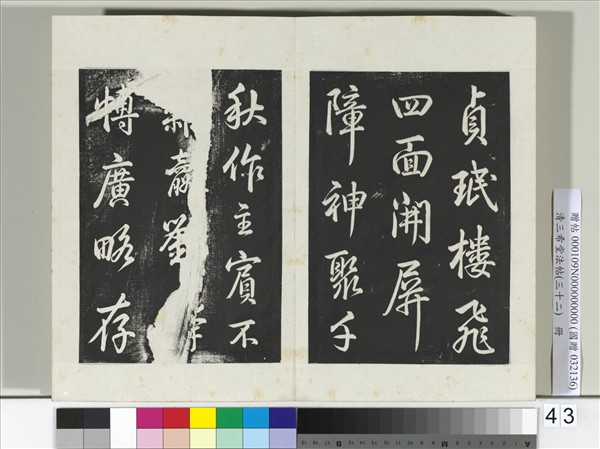 貞珉樓飛
四面開屏
障神聚千
秋作主賓不
博廣略存
贈帖 000109N000000000 (國贈 032136)
清三希堂法帖(三十二) 冊
43